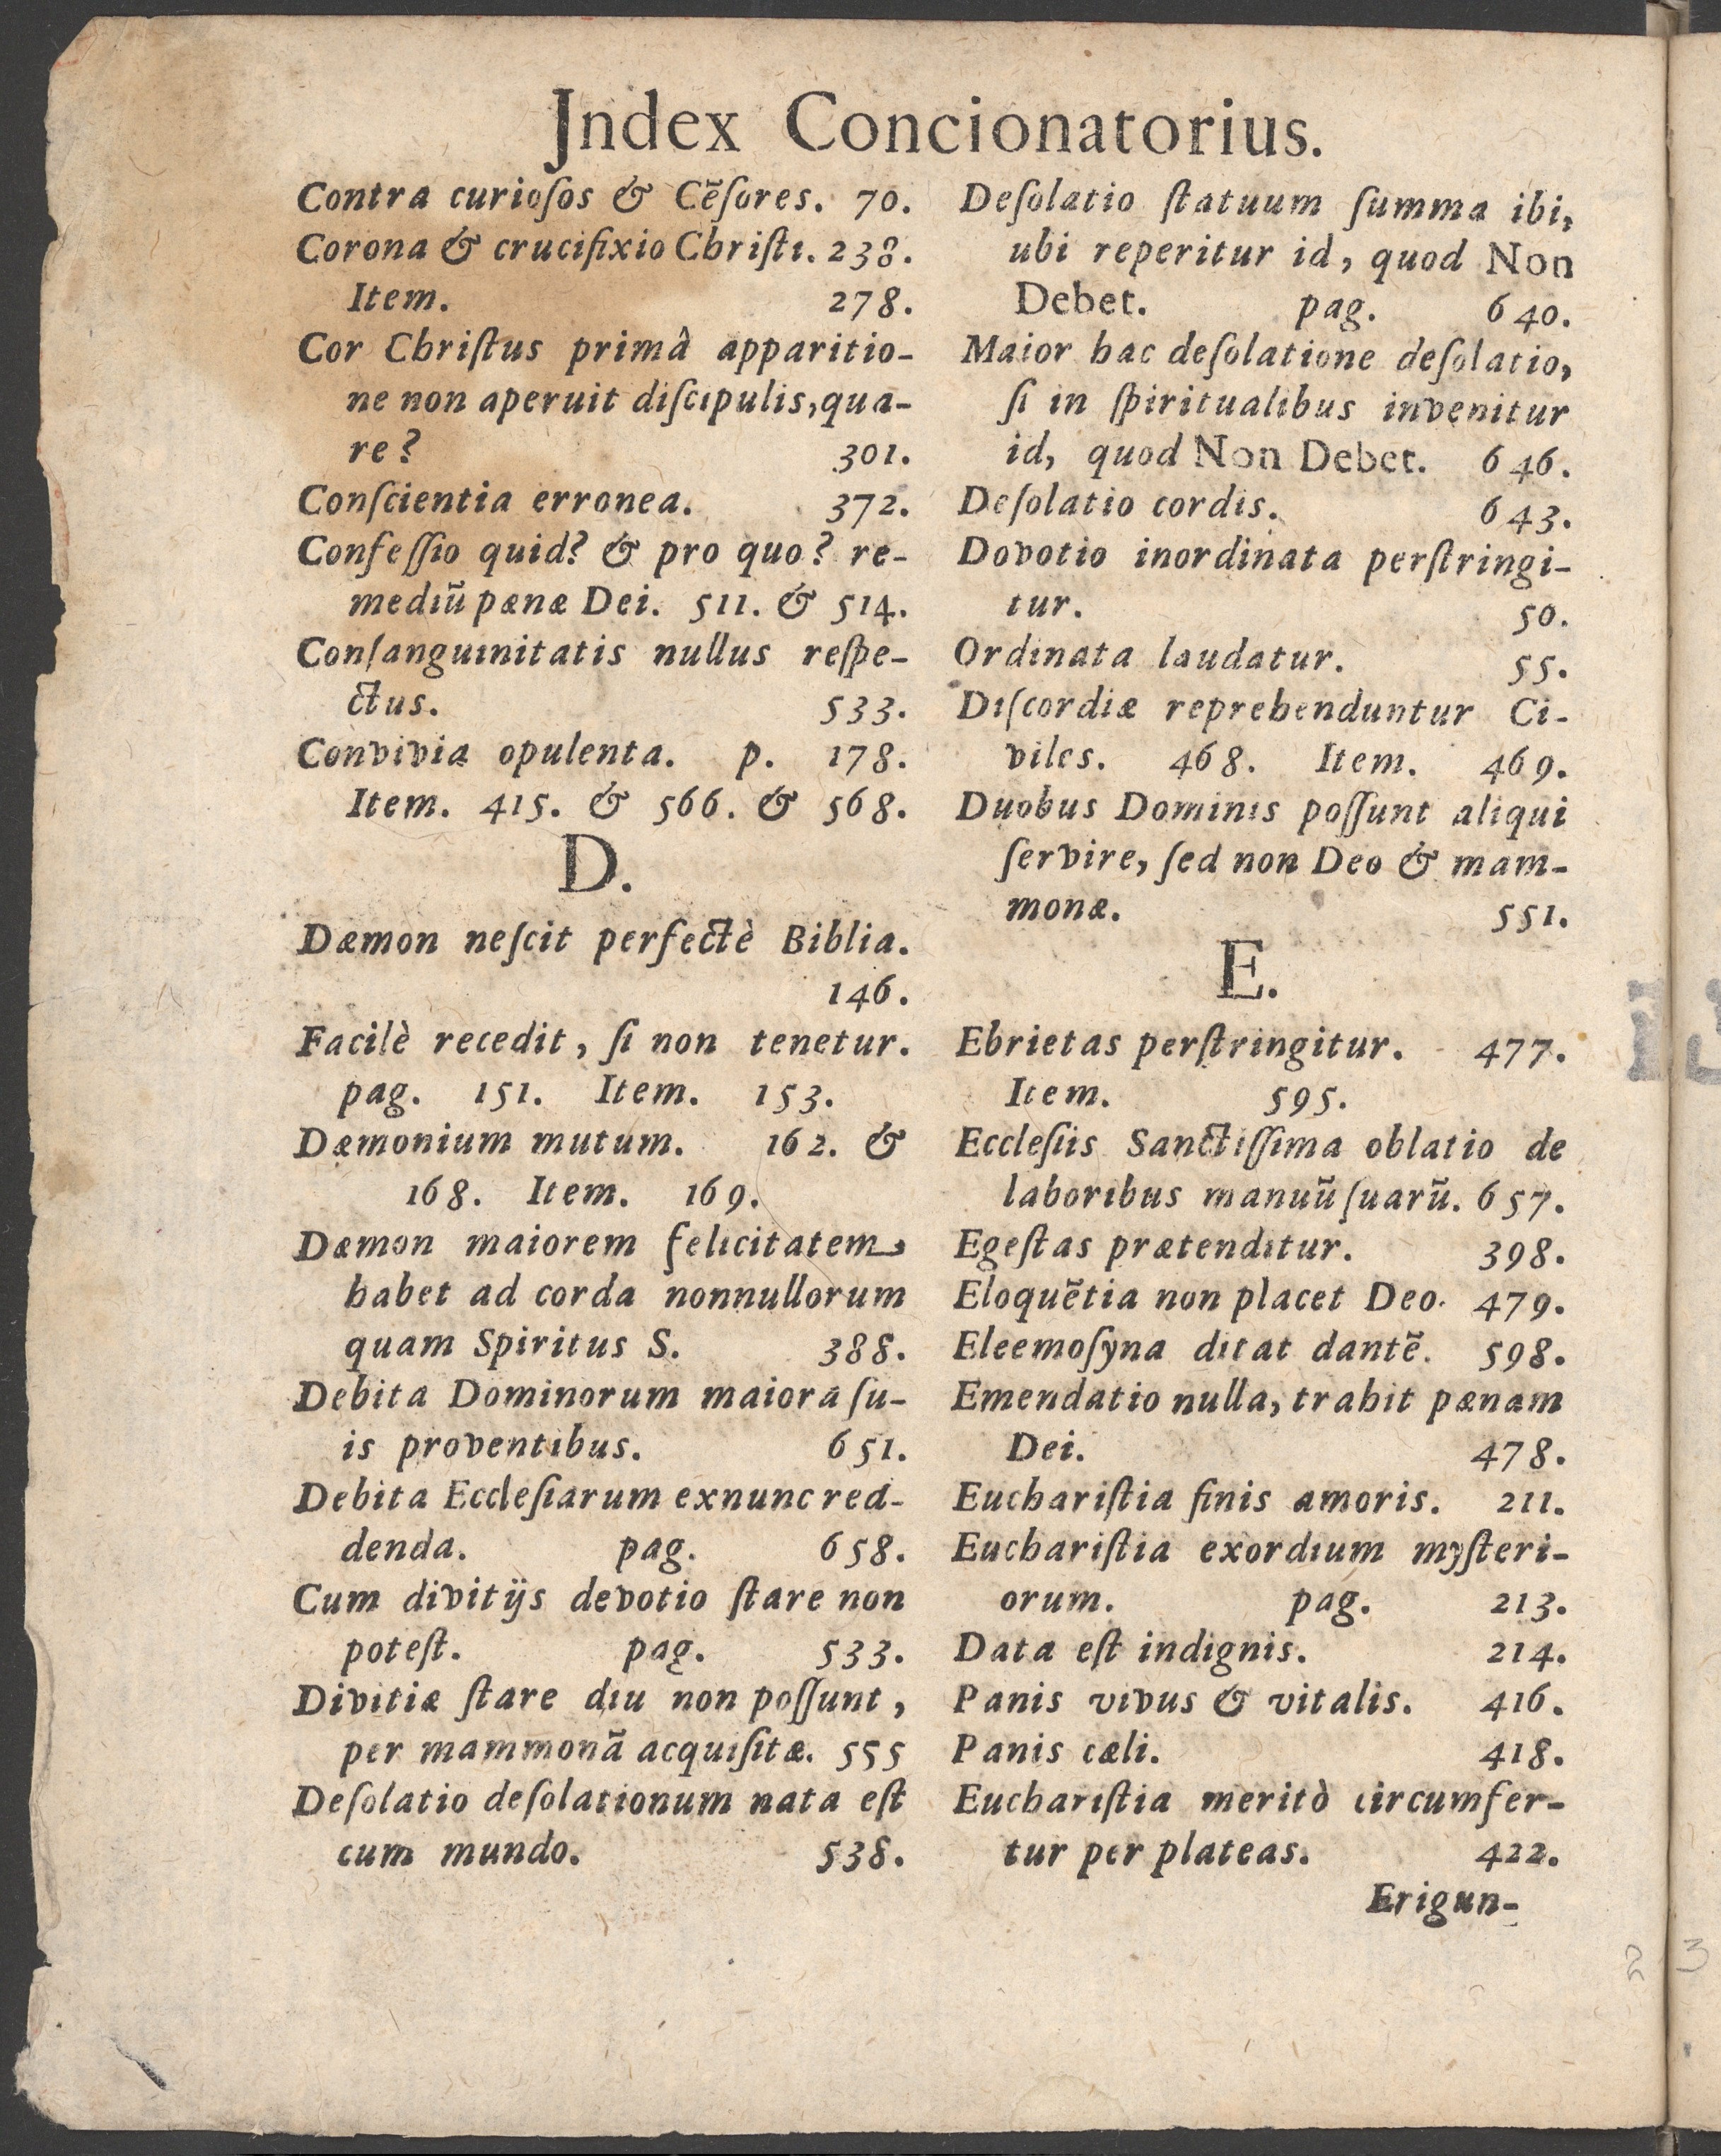 Jndex Concionatorius.
Contra curioſos & Cẽſores. 70.
Corona & crucifixio Chriſti. 238.
Item. 278.
Cor Chriſtus primâ apparitio-
ne non aperuit diſcipulis, qua-
re? 301.
Conſcientia erronea. 372.
Confeſſio quid? & pro quo? re-
mediũ pænæ Dei. 511. & 514.
Conſanguinitatis nullus reſpe-
ctus. 533.
Convivia opulenta. p. 178.
Item. 415. & 566. & 568.
D.
Dæmon neſcit perfectè Biblia.
146.
Facilè recedit, ſi non tenetur.
pag. 151. Item. 153.
Dæmonium mutum. 162. &
168. Item. 169.
Dæmon maiorem felicitatem,
habet ad corda nonnullorum
quam Spiritus S. 388.
Debita Dominorum maiora ſu-
is proventibus. 651.
Debita Eccleſiarum exnunc red-
denda. pag. 658.
Cum divitijs devotio ſtare non
poteſt. pag. 533.
Divitiæ ſtare diu non poſſunt,
per mammonã acquiſitæ. 555
Deſolatio deſolationum nata eſt
cum mundo. 538.
Deſolatio ſtatuum ſumma ibi,
ubi reperitur id, quod Non
Debet. pag. 640.
Maior hac deſolatione deſolatio,
ſi in ſpiritualibus invenitur
id, quod Non Debet. 646.
Deſolatio cordis. 643.
Dovotio inordinata perſtringi-
tur. 50.
Ordinata laudatur. 55.
Diſcordiæ reprehenduntur Ci-
viles. 468. Item. 469.
Duobus Dominis poſſunt aliqui
ſervire, ſed non Deo & mam-
monæ. 551.
E.
Ebrietas perſtringitur. 477.
Item. 595.
Eccleſiis Sanctiſſima oblatio de
laboribus manuũ ſuarũ. 657.
Egeſtas prætenditur. 398.
Eloquẽtia non placet Deo. 479.
Eleemoſyna ditat dantẽ. 598.
Emendatio nulla, trahit pænam
Dei. 478.
Euchariſtia finis amoris. 211.
Euchariſtia exordium myſteri-
orum. pag. 213.
Data eſt indignis. 214.
Panis vivus & vitalis. 416.
Panis cæli. 418.
Euchariſtia meritò circumfer-
tur per plateas. 422.
Erigun-
2 3